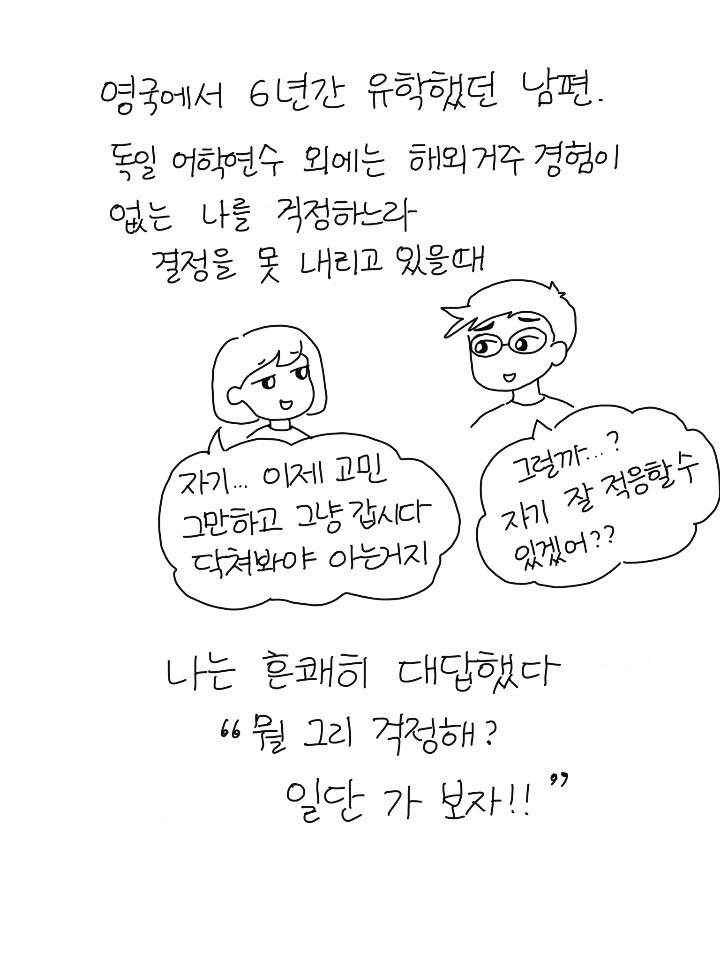 영국에서 6년간 유학했던 남편.
독일 어학연수 외에는 해외거주 경험이
없는 나를 걱정하느라
결정을 못 내리고 있을때
자기... 이제 고민
그만하고 그냥 갑시다
닥쳐봐야 아는거지
그럴까...?
자기 잘 적응할 수
있겠어??
나는 흔쾌히 대답했다
“뭘 그리 걱정해?
일단 가 보자!!”